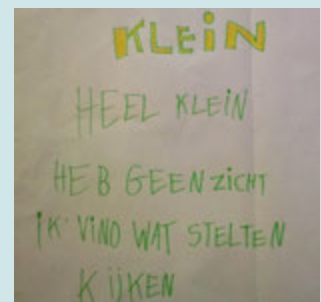 KLEiN
HEEL KLEiN
HEB GEEN ZiCHT
iK VIND WAT STELTEN
KIJKEN